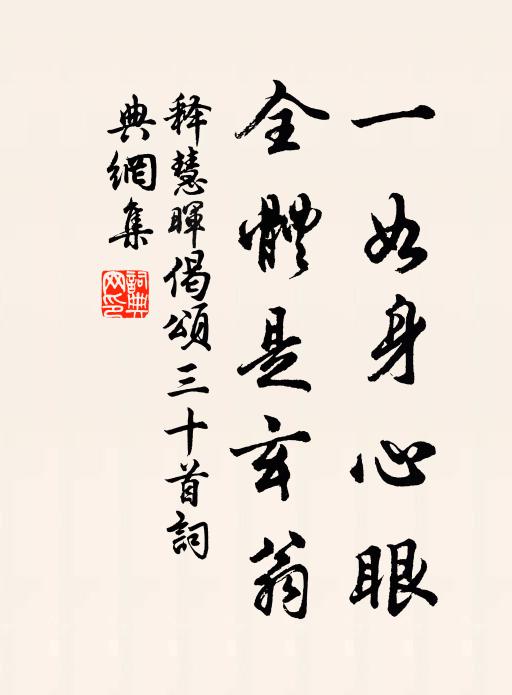 一如身心眼
全體是玄翁
释慧暉偈頌三十首詞
典網集
詞典
网印